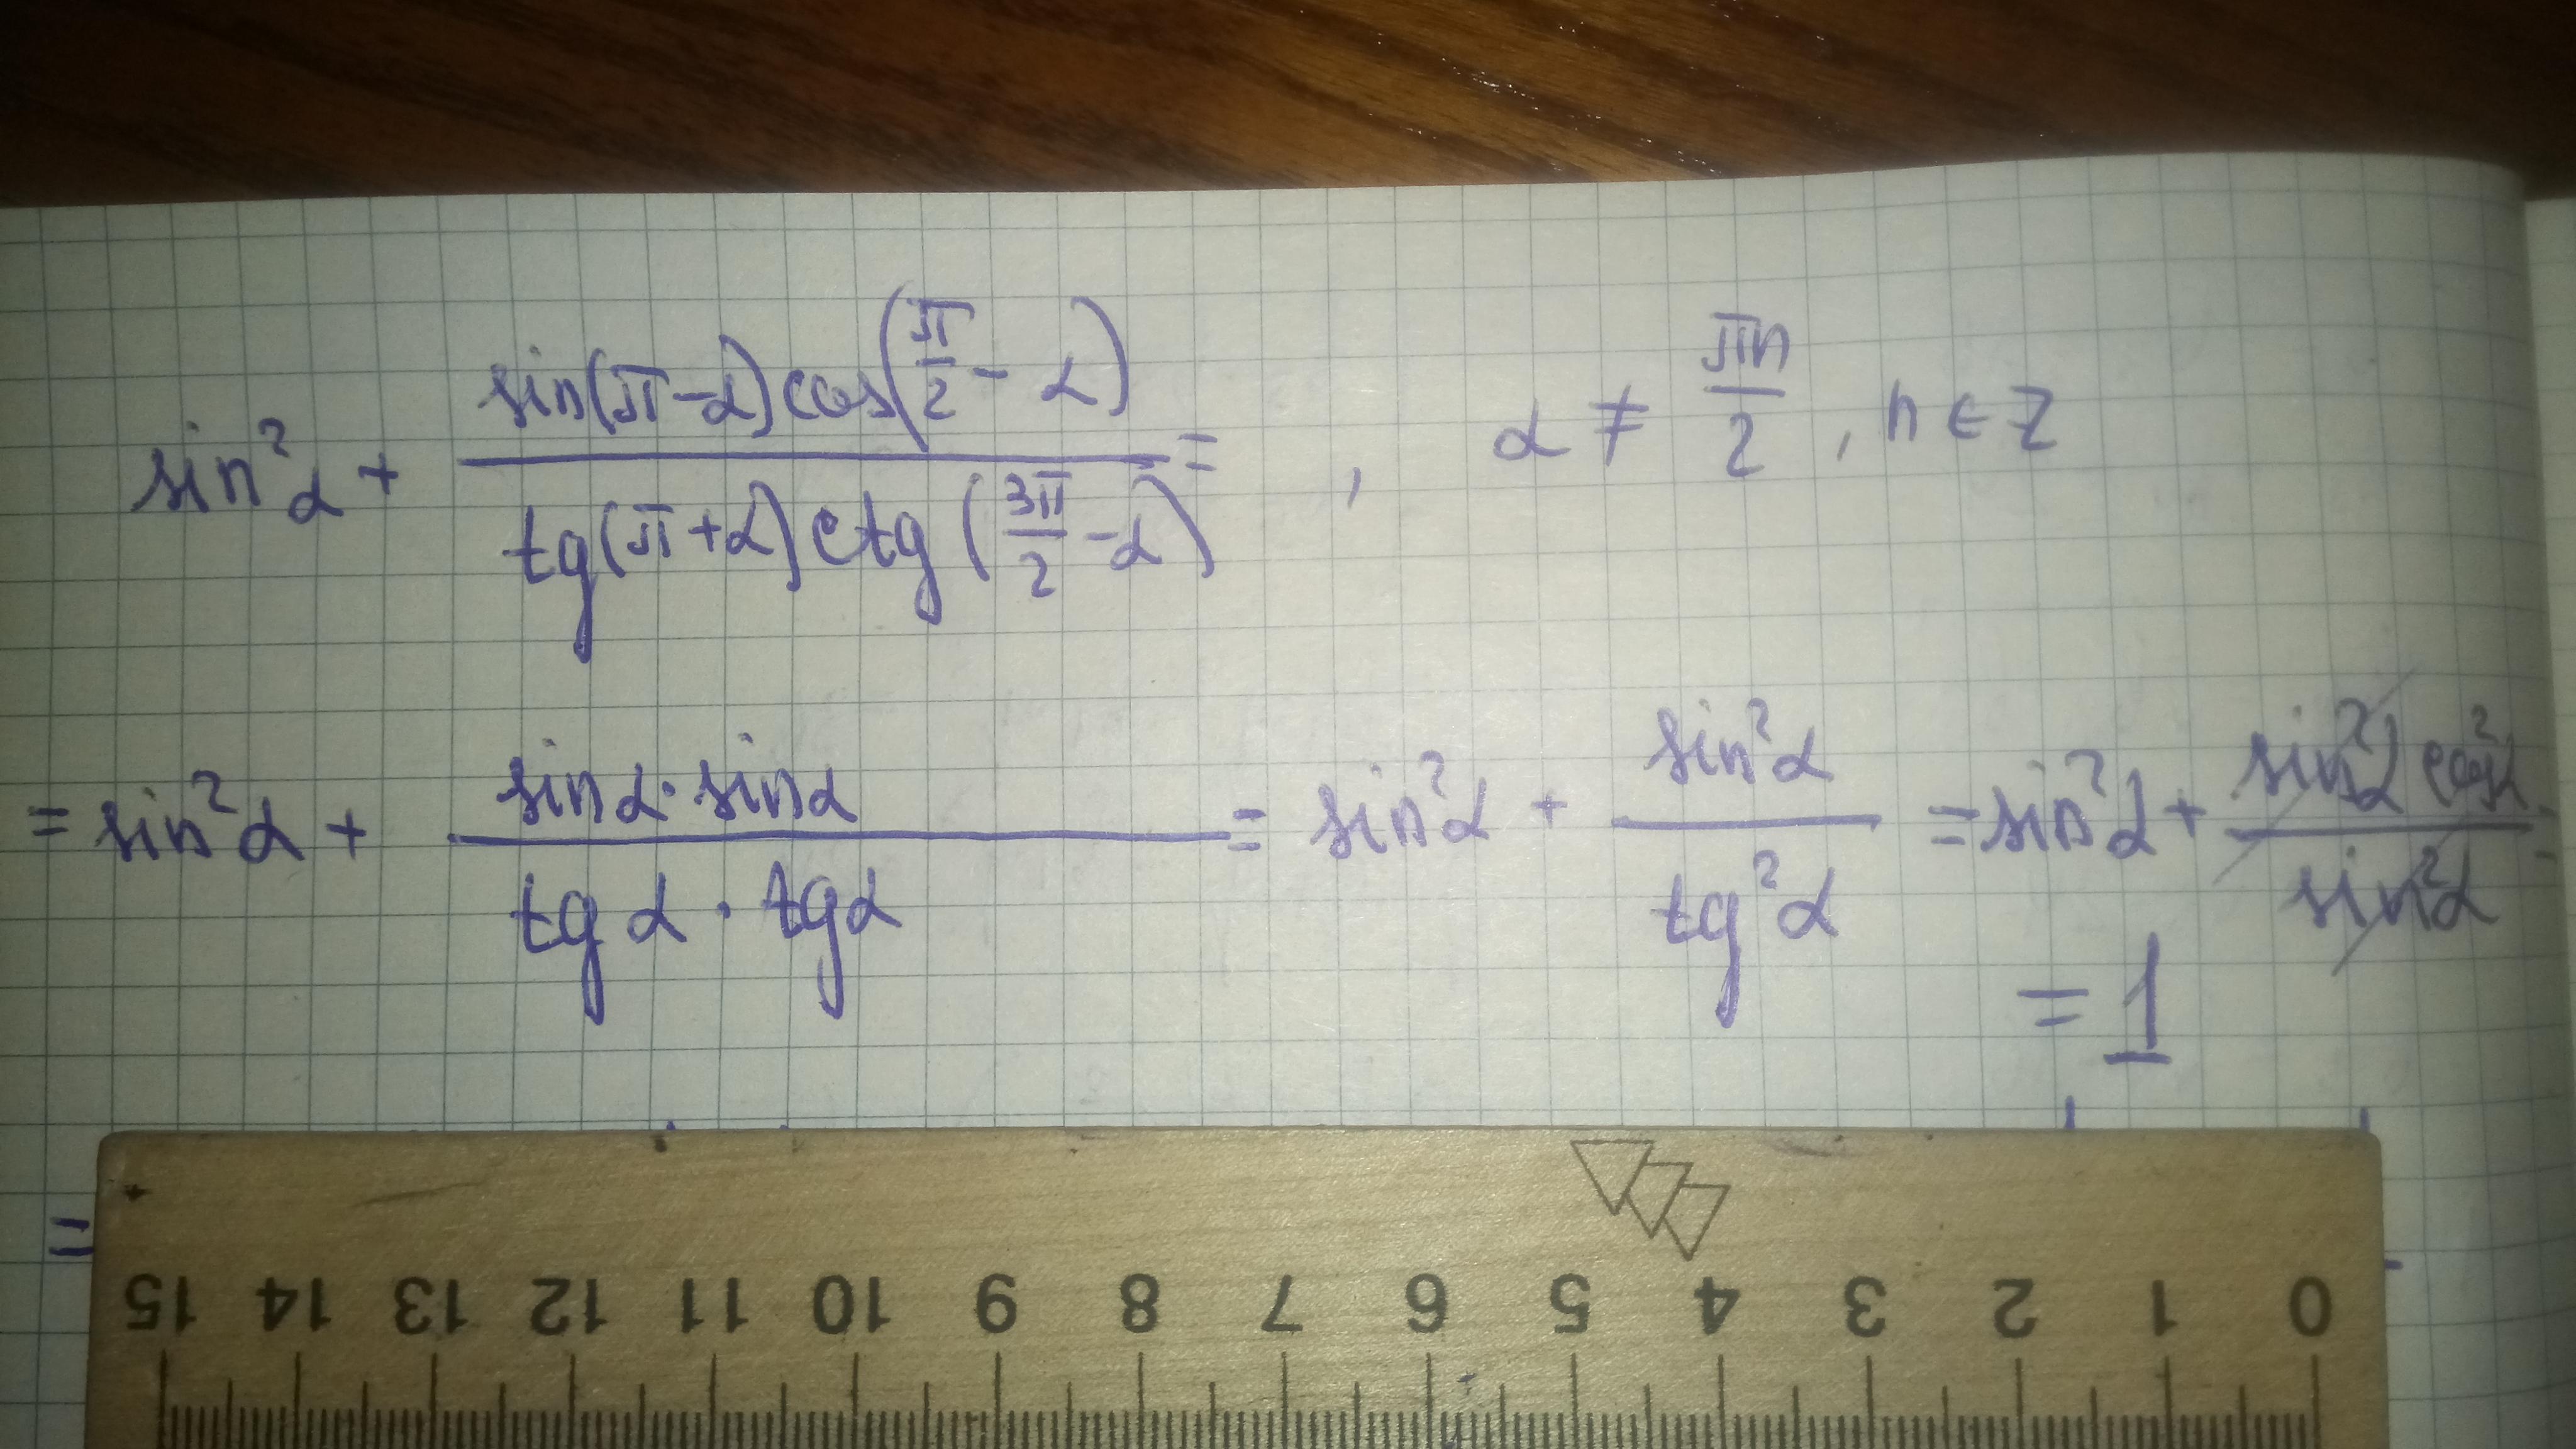 sin²α + sin(π-α)cos(π/2 - α) / tg(π+α)ctg(3π/2 -α) = , α ≠ πn/2, n ∈ Z
= sin²α + sinα·sinα / tgα·tgα = sin²α + sin²α / tg²α = sin²α + sin²α cos²α / sin²α =
= 1
=
15 14 13 12 11 10 9 8 7 6 5 4 3 2 1 0